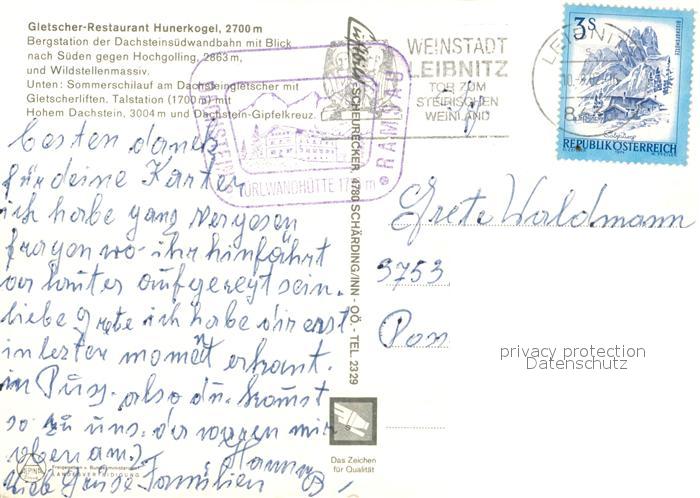 Gletscher-Restaurant Hunerkogel, 2700 m
Bergstation der Dachsteinsüdwandbahn mit Blick
nach Süden gegen Hochgolling, 2863 m,
und Wildstellenmassiv.
Unten: Sommerschilauf am Dachsteingletscher mit
Gletscherliften. Talstation (1700 m) mit
Hohem Dachstein, 3004 m und Dachstein-Gipfelkreuz.
RAMSAU
TÜRLWANDHÜTTE
WEINSTADT
LEIBNITZ
TOR ZUM
STEIRISCHEN
WEINLAND
LEIBNITZ
3 S
REPUBLIK ÖSTERREICH
SCHEURECKER, 4780 SCHÄRDING/INN - OÖ. - TEL 2329
besten dank
für deine Karten
ich habe ganz vergesen
fragen wo ihr hinfährt
vor lauter aufgeregt sein.
liebe Grete ich habe dir erst
in lezten moment erkant.
in also du komst
so zu uns.
Liebe Grüse Familien
Grete Waldmann
3753
privacy protection
Datenschutz
Das Zeichen
für Qualität
Freigegeben v. Bundesministerium f.
LANDESVERTEIDIGUNG